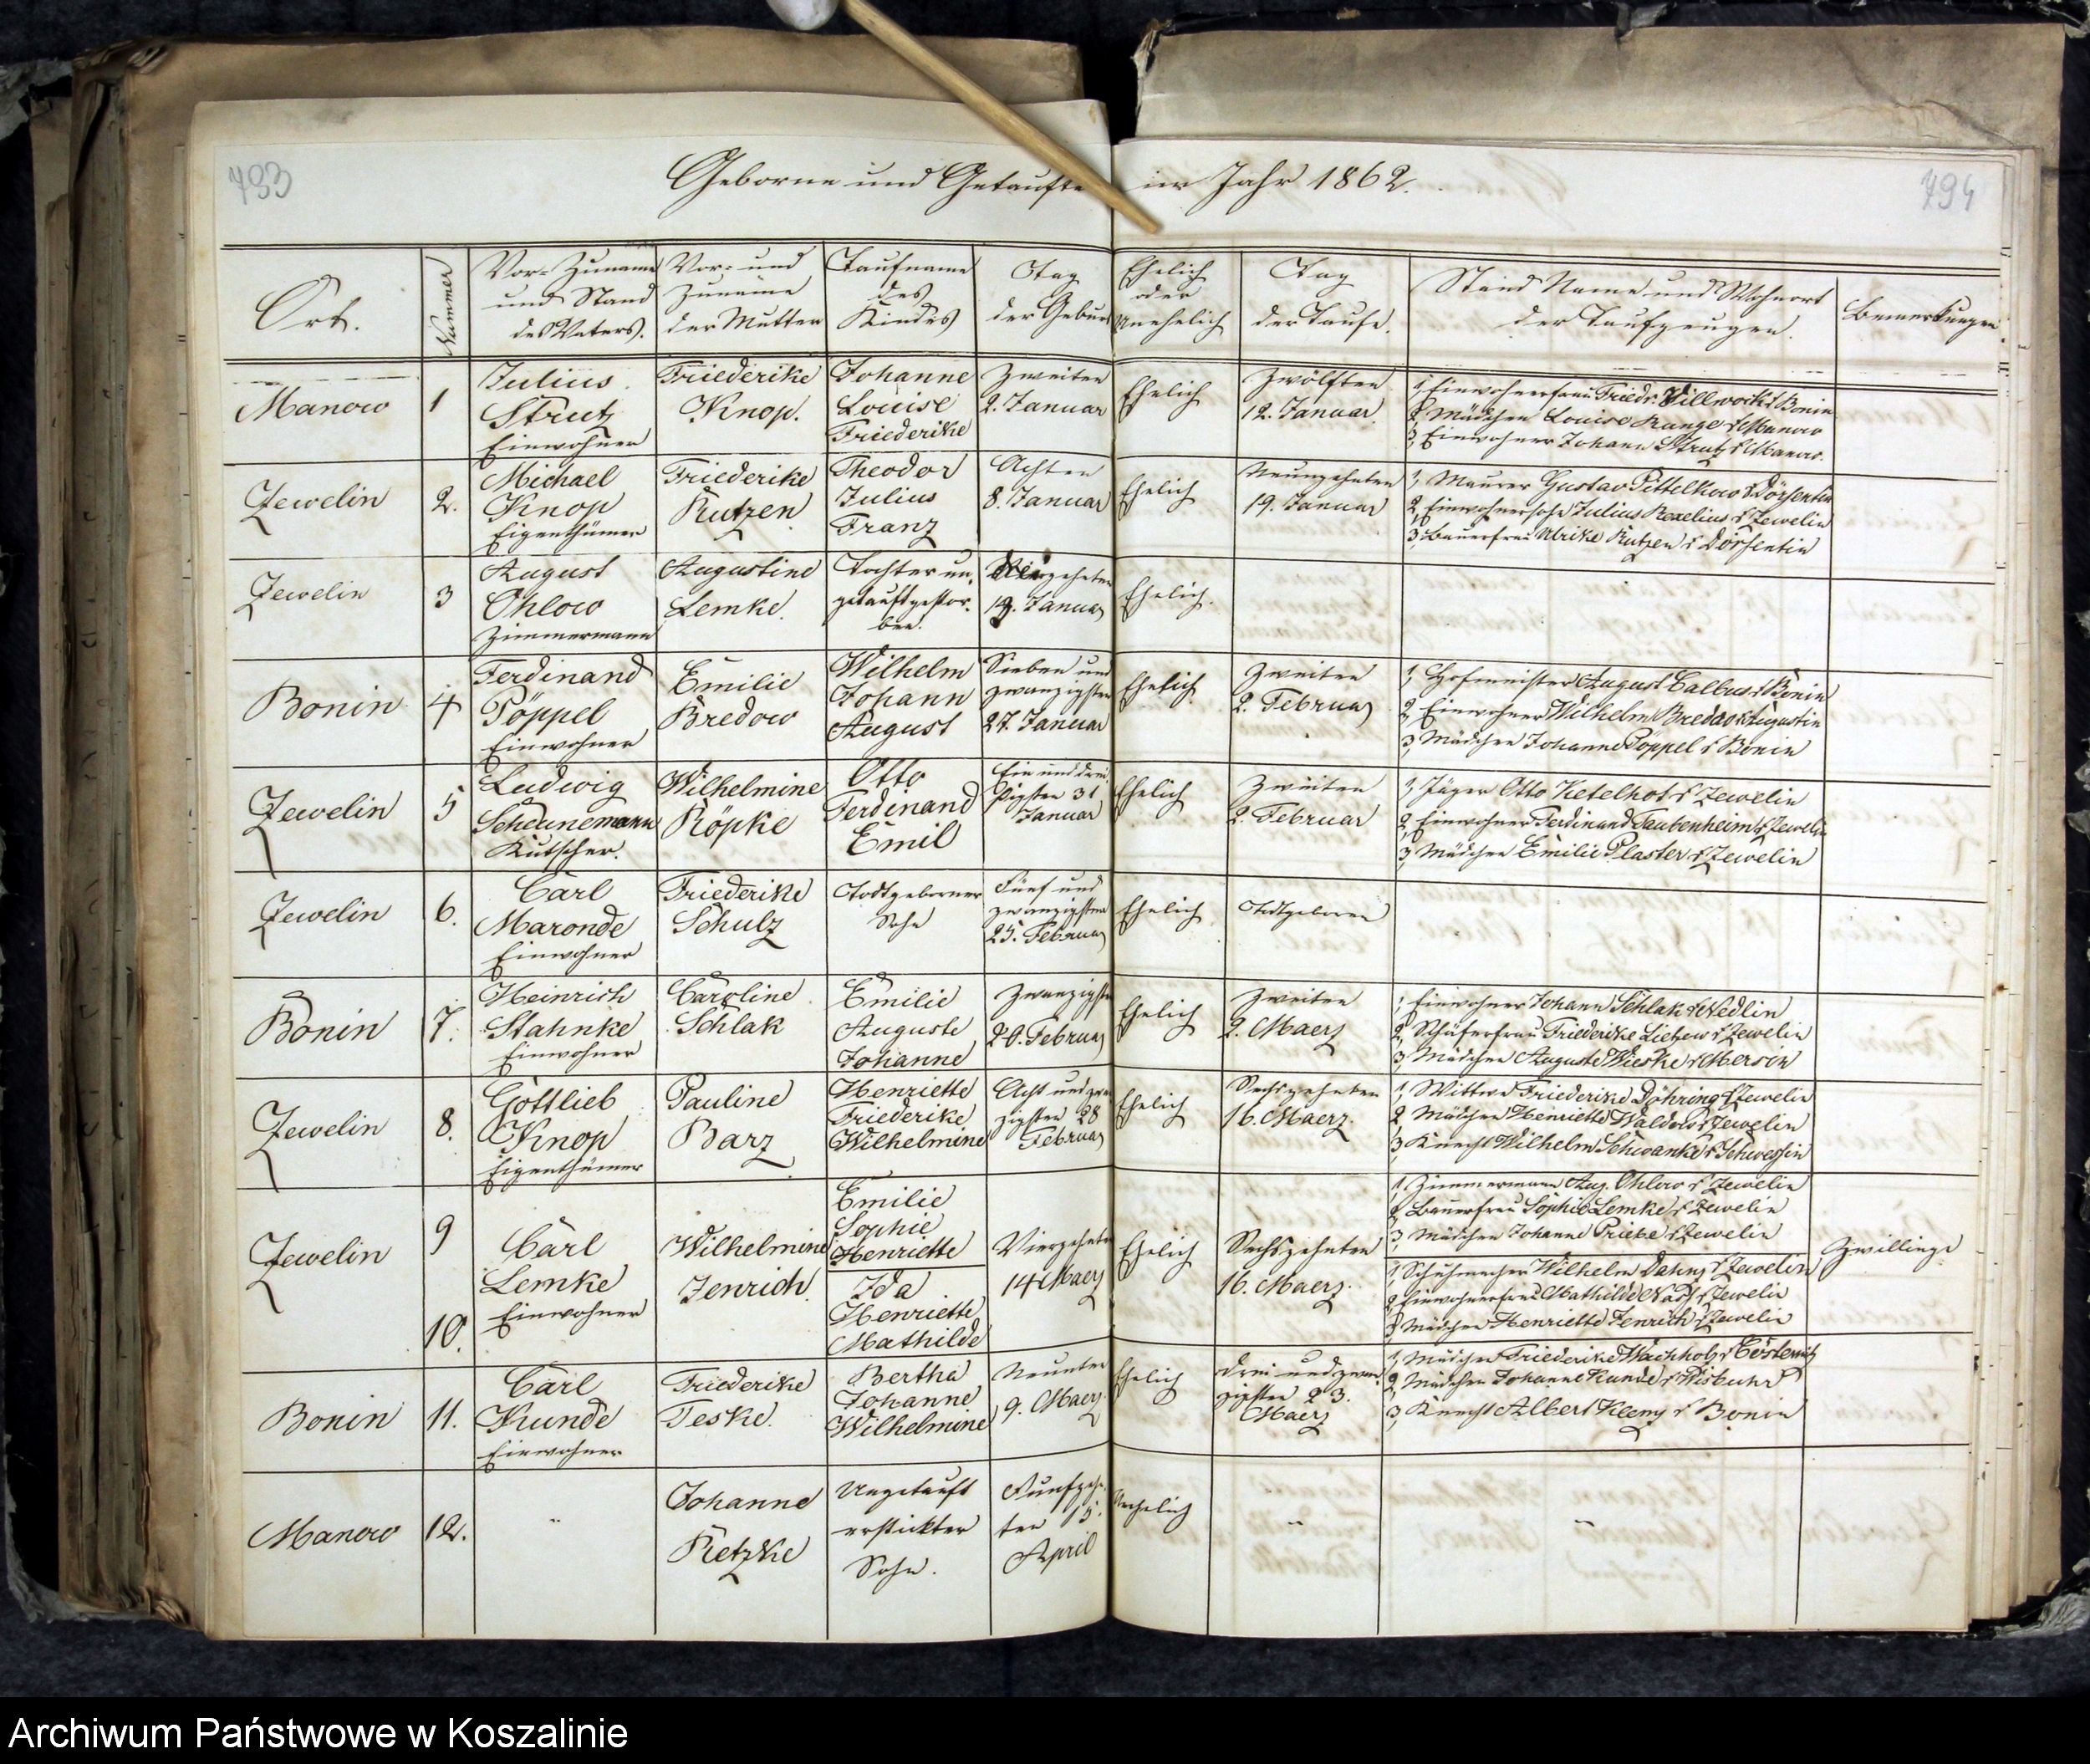 793
Geborne und Getaufte im Jahr 1862.
794
Ort.
Nummer
Vor- Zuname
und Stand
des Vaters.
Vor- und
Zuname
der Mutter
Taufname
des
Kindes
Tag
der Geburt
Ehelich
oder
Unehelich
Tag
der Taufe.
Stand Name und Wohnort
der Taufzeugen.
Bemerkungen
Manow
1
Julius
Strutz
Einwohner
Friederike
Knop.
Johanne
Louise
Friederike
Zweiten
2. Januar
Ehelich
Zwölften
12. Januar
1, Einwohnerfrau Friedr. Villwock z Bonin
2, Mädchen Louise Range z Manow
3, Einwohner Johann Strutz z Manow.
Zewelin
2.
Michael
Knop
Eigenthümer
Friederike
Rutzen
Theodor
Julius
Franz
Achten
8. Januar
Ehelich
Neunzehnten
19. Januar
1, Maurer Gustav Pittelkow z Dörsentin
2, Einwohnersohn Julius Rexelius z Zewelin
3, Bauerfrau Ulrike Rutzen z Dörsentin
Zewelin
3
August
Ohlow
Zimmermann
Augustine
Lemke.
Tochter un-
getauft gestor-
ben.
Januar
Ehelich.
Bonin
4
Ferdinand
Pöppel
Einwohner
Emilie
Bredow
Wilhelm
Johann
August
Sieben und
zwanzigsten
27. Januar
Ehelich
Zweiten
2. Februar
1, Hofmeister August Balbus z Bonin
2, Einwohner Wilhelm Bredow z Augustin
3, Mädchen Johanne Pöppel z Bonin
Zewelin
5
Ludwig
Scheunemann
Kutscher.
Wilhelmine
Röpke
Otto
Ferdinand
Emil
Ein und drei-
ßigsten 31
Januar
Ehelich
Zweiten
2. Februar
1, Jäger Otto Ketelhot z Zewelin
2, Einwohner Ferdinand Taubenheim z Zewelin
3, Mädchen Emilie Plaster z Zewelin
Zewelin
6.
Carl
Maronde
Einwohner
Friederike
Schulz
Todtgeborner
Sohn
Fünf und
zwanzigsten
25. Februar
Ehelich
Todtgeboren
Bonin
7.
Heinrich
Stahnke
Einwohner
Caroline
Schlak
Emilie
Auguste
Johanne
Zwanzigsten
20. Februar
Ehelich
Zweiten
2. Maerz
1, Einwohner Johann Schlak z Nedlin
2, Schäferfrau Friederike Lietzow z Zewelin
3, Mädchen Auguste Wieske z Mersin
Zewelin
8.
Gottlieb
Knop
Eigenthümer
Pauline
Barz
Henriette
Friederike
Wilhelmine
Acht und zwan-
zigsten 28
Februar
Ehelich
Sechszehnten
16. Maerz
1, Wittwe Friederike Döhring z Zewelin
2, Mädchen Henriette Waldow z Zewelin
3, Knecht Wilhelm Schwanke z Schwessin
Zewelin
9
10.
Carl
Lemke
Einwohner
Wilhelmine
Jenrich
Emilie
Sophie
Henriette
Ida
Henriette
Mathilde
Vierzehnten
14 Maerz
Ehelich
Sechszehnten
16. Maerz.
1, Zimmermann Aug. Ohlow z Zewelin
2, Bauerfrau Sophie Lemke z Zewelin
3, Mädchen Johanne Priebe z Zewelin
1, Schuhmacher Wilhelm Dahnz z Zewelin
2, Einwohnerfrau Mathilde Nass z Zewelin
3, Mädchen Henriette Jenrich z Zewelin
Zwillinge
Bonin
11.
Carl
Kunde
Einwohner
Friederike
Teske.
Bertha
Johanne
Wilhelmine
Neunten
9. Maerz
Ehelich
Drei und zwan-
zigsten 23.
Maerz
1, Mädchen Friederike Wachholz z Cösternitz
2, Mädchen Johanne Kunde z Wisbuhr
3, Knecht Albert Kleng z Bonin
Manow
12.
"
Johanne
Retzke
Ungetauft
erstickter
Sohn.
Fünfzehn-
ten 15.
April
Unehelich
"
"
Archiwum Państwowe w Koszalinie